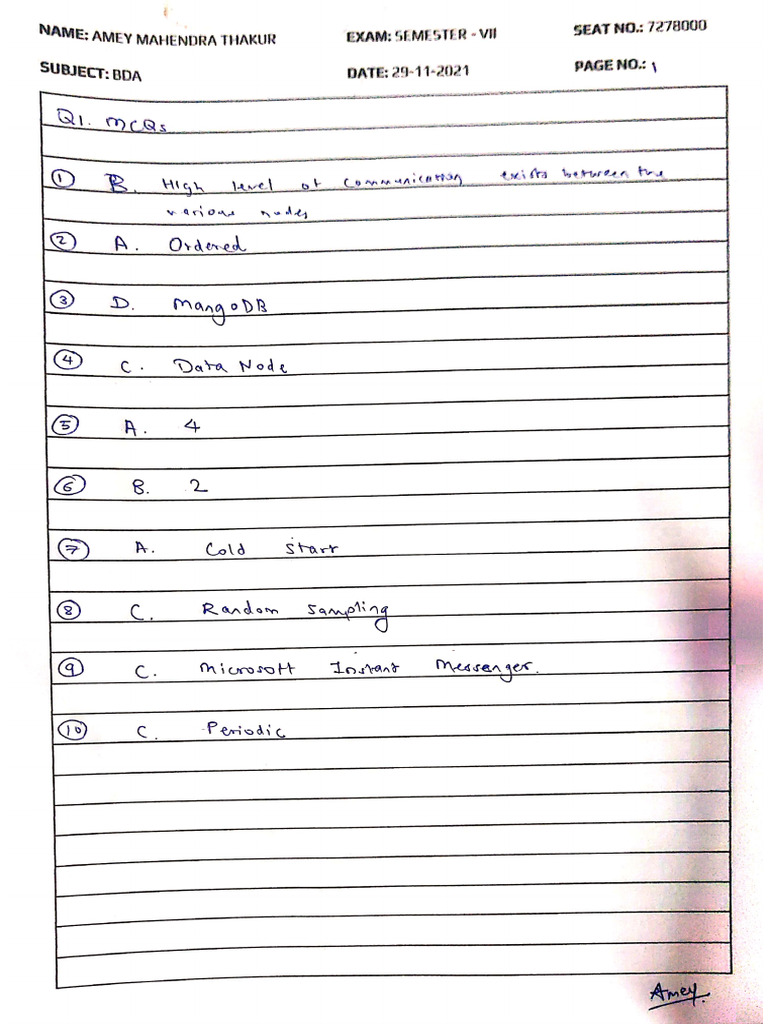 NAME: AMEY MAHENDRA THAKUR EXAM: SEMESTER - VII SEAT NO.: 7278000
SUBJECT: BDA DATE: 29-11-2021 PAGE NO.: 1
Q1. MCQs
1 B. High level of communication exists between the
various nodes
2 A. Ordered
3 D. MangoDB
4 C. Data Node
5 A. 4
6 B. 2
7 A. Cold start
8 C. Random sampling
9 C. Microsoft Instant Messenger.
10 C. Periodic
Amey